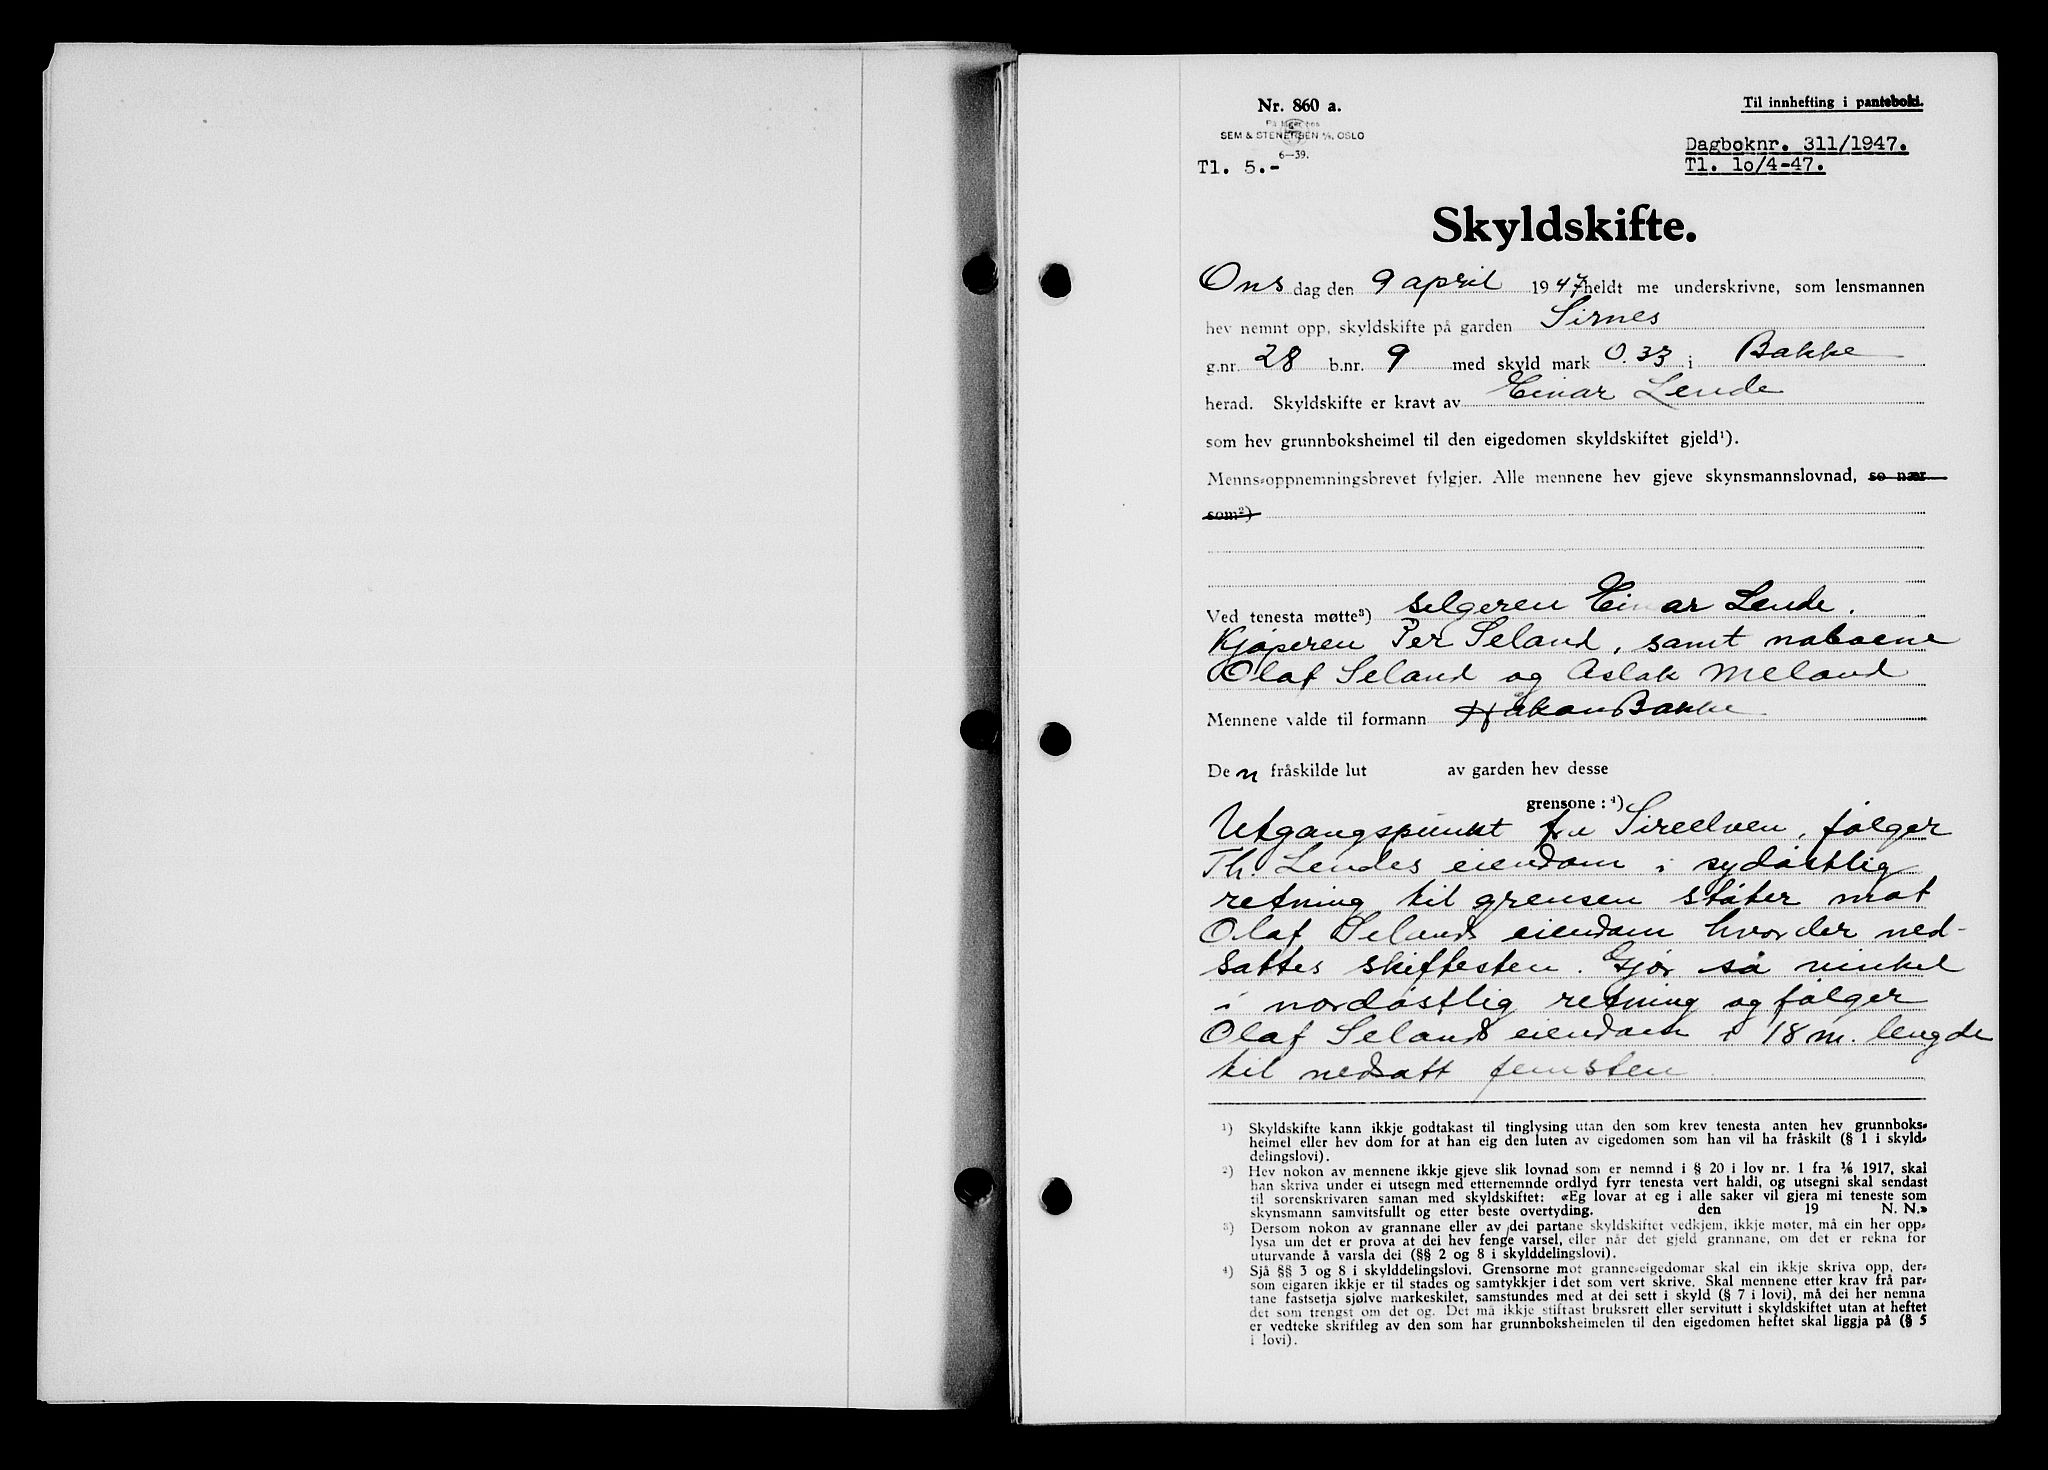 Nr. 860 a.
På lager hos
SEM & STENERSEN A/S, OSLO
6—39.
Tl. 5.-
Til innhefting i panteboki.
Dagboknr. 311/1947.
Tl. 1o/4-47.
Skyldskifte.
Ons dag den 9 april 1947 heldt me underskrivne, som lensmannen
hev nemnt opp, skyldskifte på garden Sirnes
g.nr. 28 b.nr. 9 med skyld mark 0.33 i Bakke
herad. Skyldskifte er kravt av Einar Lende
som hev grunnboksheimel til den eigedomen skyldskiftet gjeld¹).
Menns-oppnemningsbrevet fylgjer. Alle mennene hev gjeve skynsmannslovnad, so nær
som²)
Ved tenesta møtte³) selgeren Einar Lende.
Kjøperen Per Seland, samt naboene
Olaf Seland og Aslak Meland
Mennene valde til formann Håkon Bakke
Den fråskilde lut av garden hev desse
grensone:⁴)
Utgangspunkt fra Sireelven, følger
Th. Lendes eiendom i sydøstlig
retning til grensen støter mot
Olaf Selands eiendom hvor der ned-
sattes skiftesten. Gjør så vinkel
i nordøstlig retning og følger
Olaf Selands eiendom i 18 m. lengde
til nedsatt femsten
¹) Skyldskifte kann ikkje godtakast til tinglysing utan den som krev tenesta anten hev grunnboks-
heimel eller hev dom for at han eig den luten av eigedomen som han vil ha fråskilt (§ 1 i skyld-
delingslovi).
²) Hev nokon av mennene ikkje gjeve slik lovnad som er nemnd i § 20 i lov nr. 1 fra 1/6 1917, skal
han skriva under ei utsegn med etternemnde ordlyd fyrr tenesta vert haldi, og utsegni skal sendast
til sorenskrivaren saman med skyldskiftet: «Eg lovar at eg i alle saker vil gjera mi teneste som
skynsmann samvitsfullt og etter beste overtyding. den 19 N. N.»
³) Dersom nokon av grannane eller av dei partane skyldskiftet vedkjem, ikkje møter, må ein her opp-
lysa um det er prova at dei hev fenge varsel, eller når det gjeld grannane, om det er rekna for
uturvande å varsla dei (§§ 2 og 8 i skylddelingslovi).
⁴) Sjå §§ 3 og 8 i skylddelingslovi. Grensorne mot granne-eigedomar skal ein ikkje skriva opp, der-
som eigaren ikkje er til stades og samtykkjer i det som vert skrive. Skal mennene etter krav frå par-
tane fastsetja sjølve markeskilet, samstundes med at dei sett i skyld (§ 7 i lovi), må dei her nemna
det som trengst om det og. Det må ikkje stiftast bruksrett eller servitutt i skyldskiftet utan at heftet
er vedteke skriftleg av den som har grunnboksheimelen til den eigedomen heftet skal liggja på (§ 5
i lovi).